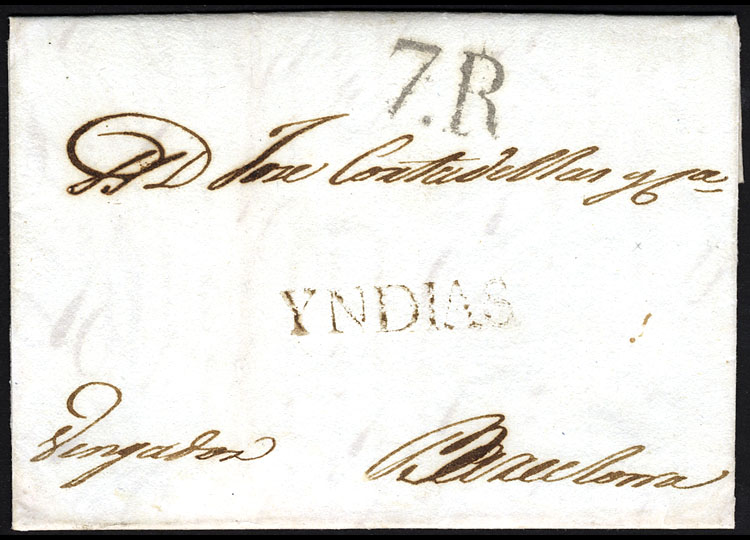 7.R
Sr D Jose Contadellas y Ca
YNDIAS
Vengador Barcelona